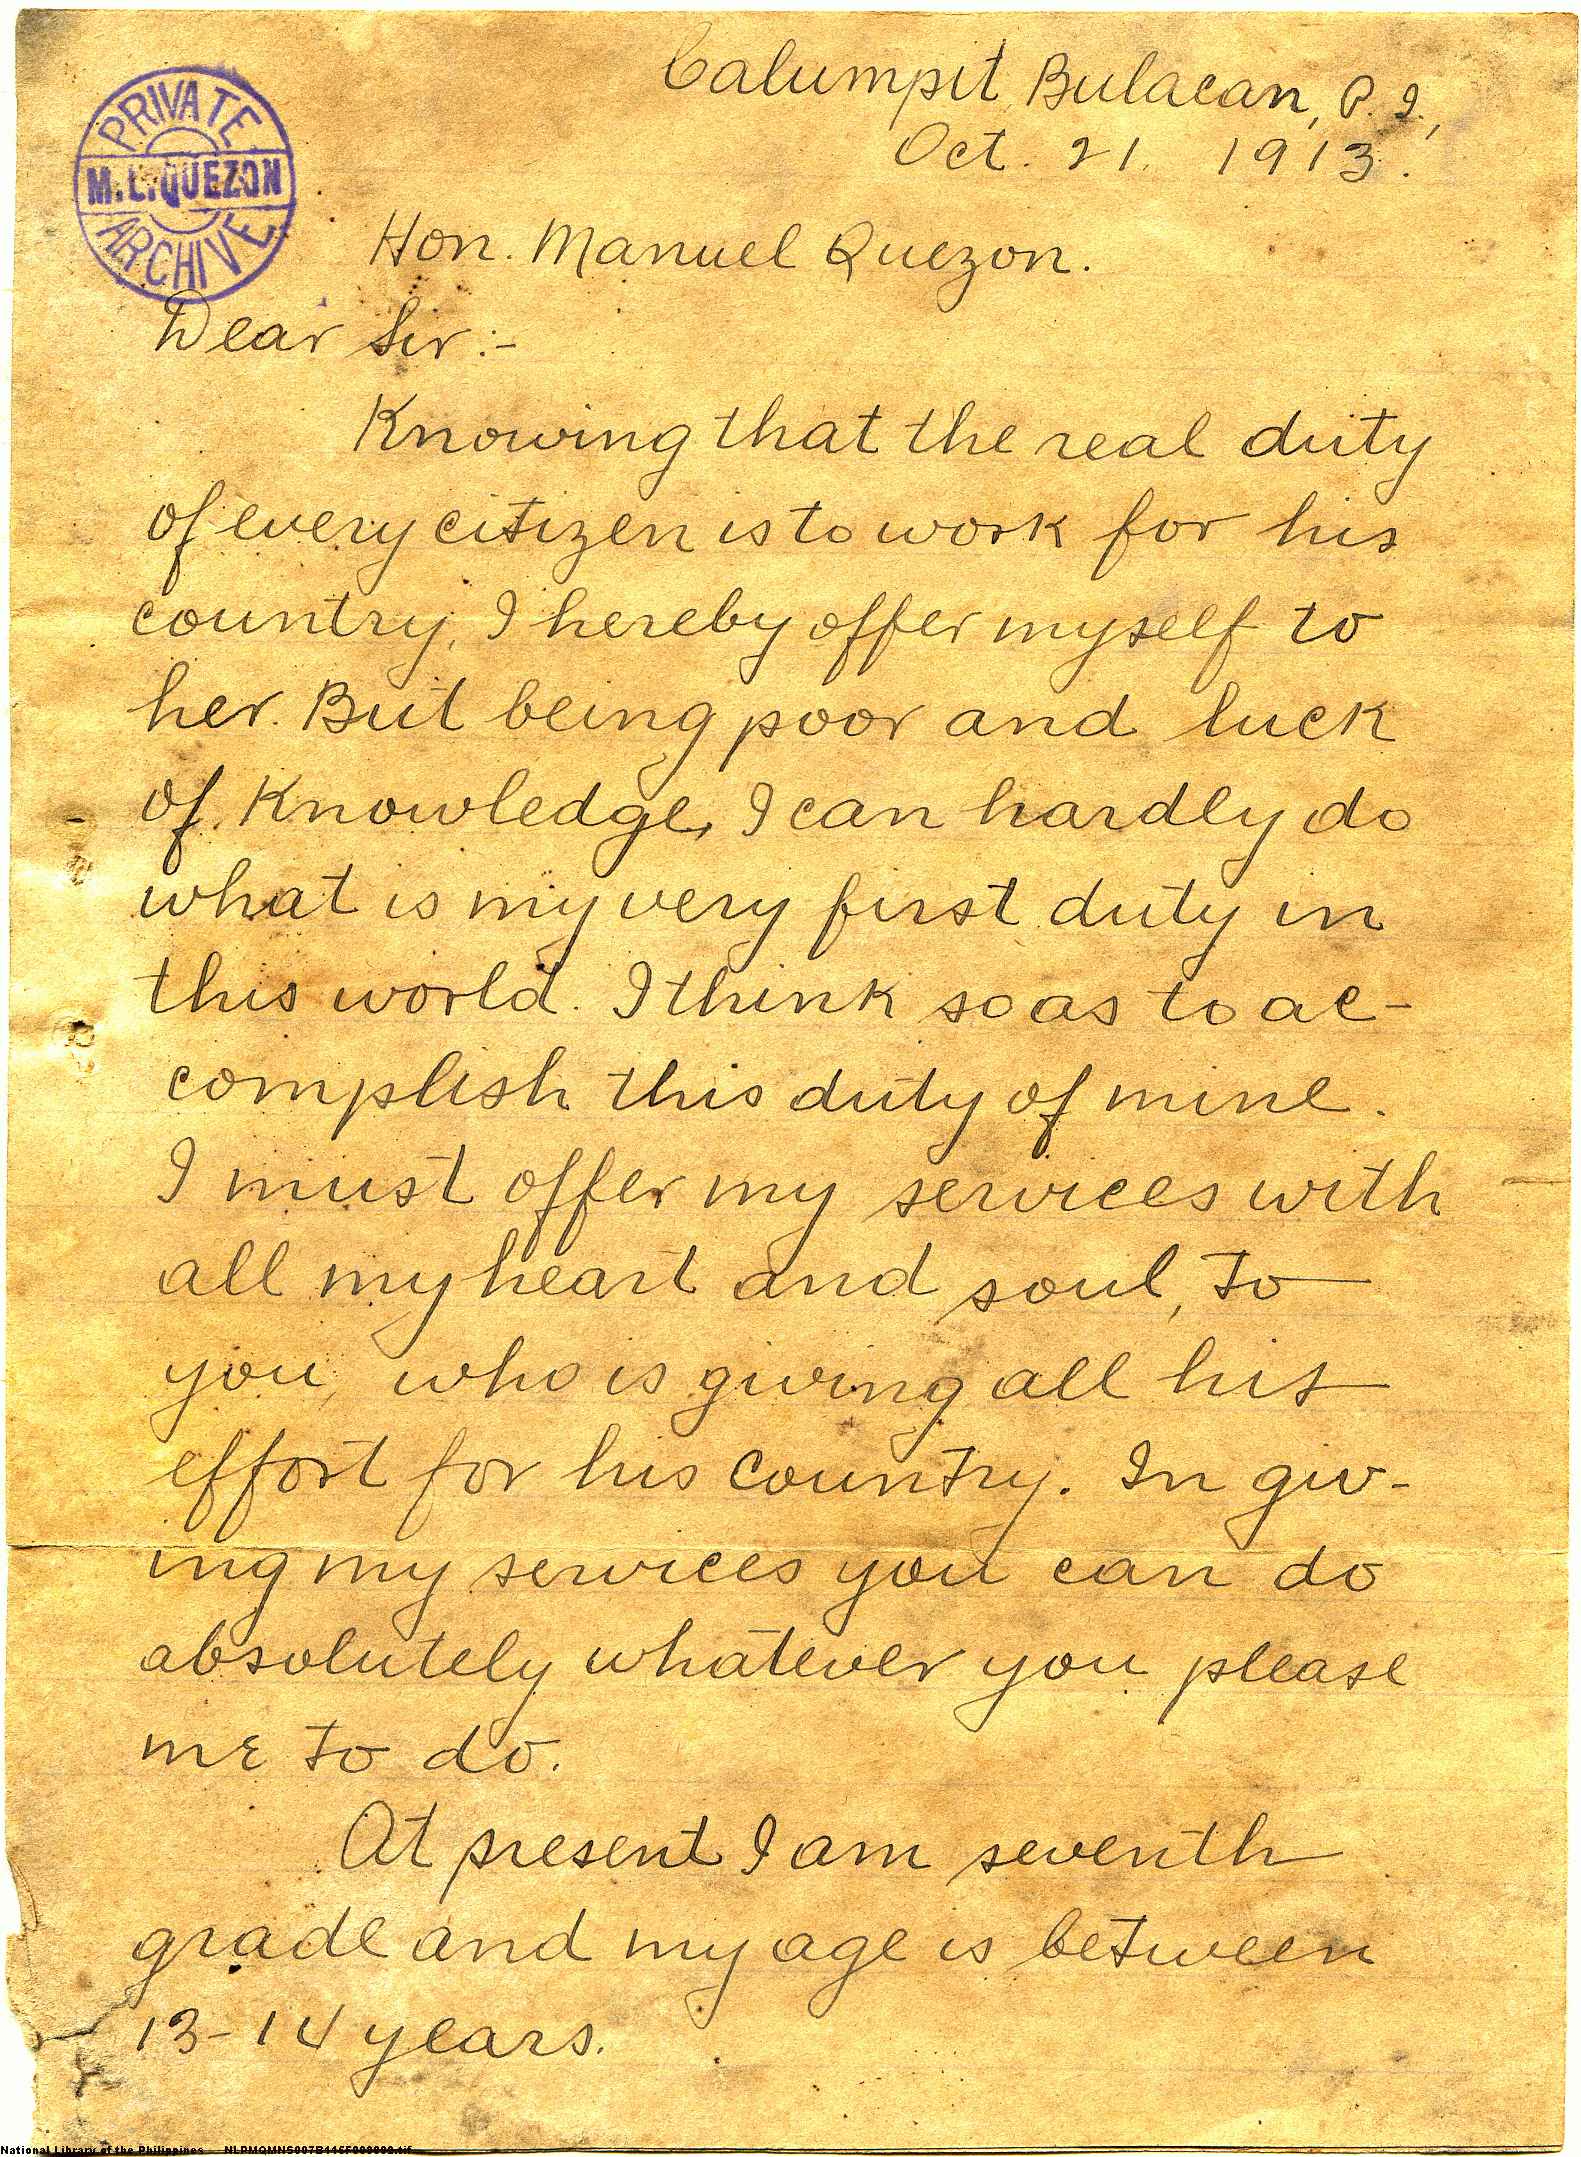 Calumpit, Bulacan, P. I.,
Oct. 21. 1913.
PRIVATE
M. L. QUEZON
ARCHIVE
Hon. Manuel Quezon.
Dear Sir:-
Knowing that the real duty
of every citizen is to work for his
country, I hereby offer myself to
her. But being poor and luck
of knowledge, I can hardly do
what is my very first duty in
this world. I think so as to ac-
complish this duty of mine.
I must offer my services with
all my heart and soul, to
you, who is giving all his
effort for his country. In giv-
ing my services you can do
absolutely whatever you please
me to do.
At present I am seventh
grade and my age is between
13-14 years.
National Library of the Philippines